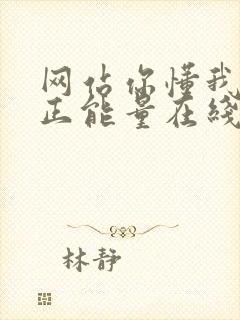 网站你懂我
正能量在线
林静